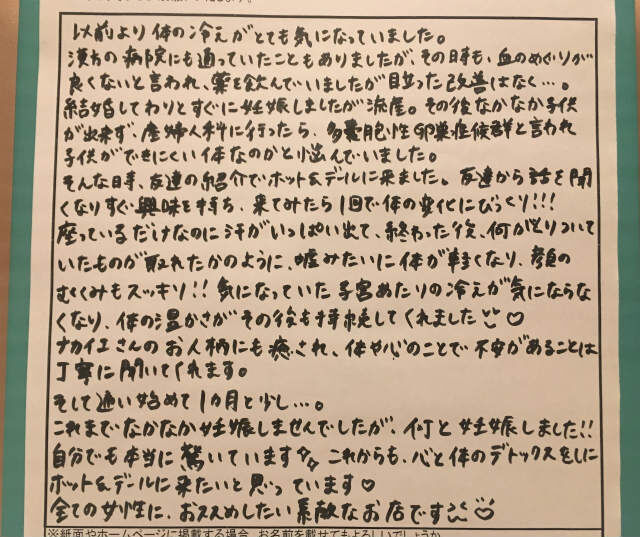 以前より体の冷えがとても気になっていました。
漢方の病院にも通っていたこともありましたが、その時も、血のめぐりが
良くないと言われ、薬を飲んでいましたが目立った改善はなく…。
結婚してわりとすぐに妊娠しましたが流産。その後なかなか子供
が出来ず、産婦人科に行ったら、多嚢胞性卵巣症候群と言われ
子供ができにくい体なのかと悩んでいました。
そんな時、友達の紹介でホット&デールに来ました。友達から話を聞
くなりすぐ興味を持ち、来てみたら1回で体の変化にびっくり!!!
座っているだけなのに汗がいっぱい出て、終わった後、何がとりついて
いたものが取れたかのように、嘘みたいに体が軽くなり、顔の
むくみもスッキリ!! 気になっていた子宮あたりの冷えが気にならな
くなり、体の温かさがその後も持続してくれました♡
ナカイエさんのお人柄にも癒され、体や心のことで不安があることは
丁寧に聞いてくれます。
そして通い始めて1カ月と少し…。
これまでなかなか妊娠しませんでしたが、何と妊娠しました!!
自分でも本当に驚いています これからも、心と体のデトックスをしに
ホット&デールに来たいと思っています♡
全ての女性に、おススメしたい素敵なお店です♡
※紙面やホームページに掲載する場合、お名前を載せてもよろしいでしょうか